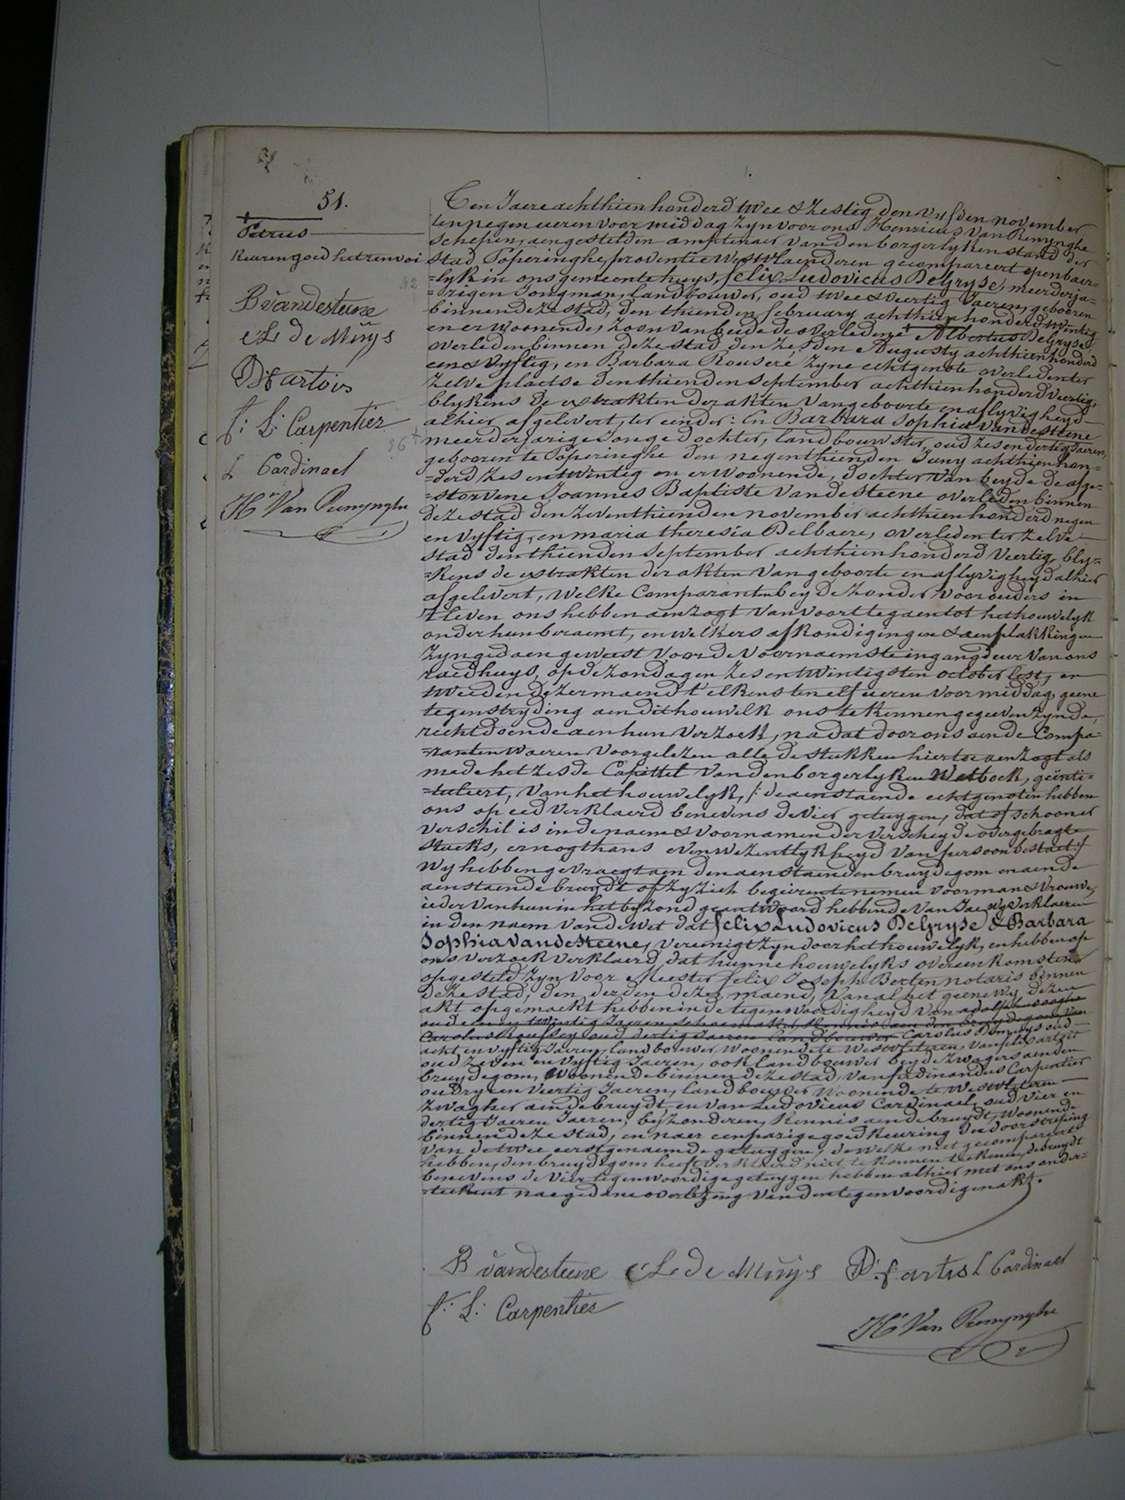 51.
Petrus
Keuren goed het renvoi
B vandesteene
C L De Muijs
D: f artois
f: L: Carpentier
L Cardinael
Hri Van Remynghe
Ten Jaere achthien honderd twee & zestig den vyfden november
ten negen ueren voor middag zyn voor ons Henricus Van Remynghe
schepen, aengestelden amptenaer van den borgerlyken stand der
stad Poperinghe, proventie Westvlaenderen gecompareert openbaer-
=lyk in ons gemeentehuys, felix Ludovicus Delgryse, meerderja-
=rigen Jongman, landbouwer, oud twee & veertig Jaeren, geboren
binnen deze stad, den thienden february achthien honderd twintig
en er woonende, zoon van beide de overledene Albertus Delgryse
overleden binnen deze stad den zesden Augusty achthien honderd
een & vyftig, en Barbara Rouseré zyne echtgenote overleden ter
zelve plaetse den thienden september achthien honderd veertig,
blykens de extrakten der akten van geboorte en aflyvigheyd
alhier afgelevert, ter eender: En Barbara Sophia Vandesteene
meerderjarige Jonge dochter, landbouwster, oud zes en dertig Jaeren,
geboren te Poperinghe den negenthienden Juny achthien hon-
=derd zes en twintig en er woonende, dochter van beyde de afge-
=storvene Joannes Baptiste Vandesteene overleden binnen
deze stad den zeventhienden november achthien honderd negen
en vyftig, en maria theresia Delbaere, overleden ter zelve
stad den thienden september achthien honderd veertig, bly-
=kens de extrakten der akten van geboorte en aflyvigheyd alhier
afgelevert, Welke Comparanten beyde zonder voorouders in
't leven ons hebben aenzogt van voort te gaen tot het houwelyk
onder hun beraemt, en welkers afkondigingen & aenplakkingen
zyn gedaen geweest voor de voornaemste ingangdeur van ons
raedhuys, op de zondagen zes en twintigsten october lest, en
tweeden dezer maend t'elkens ten elf ueren voor middag, geene
tegenstryding aen dit houwelk ons te kennen gegeven zynde,
recht doende aen hun verzoek, na dat door ons aen de Compa-
=ranten waeren voorgelezen alle de stukken hiertoe aenzogt als
mede het zesde Capittel van den borgerlyken Wetboek, geïnti-
=tuleert, van het houwelyk, /: de aenstaende echtgenoten hebben
ons op eed verklaerd benevens de vier getuygen, dat of schooner
verschil is in de naem & voornamen der verscheyde overgebragte
stuks, er nogthans evenwezentlykheyd van persoon bestaet :/
Wy hebben gevraegt aen den aenstaenden bruydegom en aen de
aenstaende bruydt of zy zich begeeren te nemen voor man & vrouwe,
ieder van hun in het byzond geantwoord hebbende van Ja, wy verklaeren
in den naem van de Wet dat felix Ludovicus Delgryse & Barbara
Sophia Vandesteene, vereenigt zyn door het houwelyk, en hebben op
ons verzoek verklaerd, dat hunne houwelyks overeenkomsten
opgesteld zyn voor Meester felix Joseph Berten notaris binnen
deze stad, den derden dezer maend, Van al het geene wy dezen
akt opgemaekt hebben in de tegenwoordigheyd van
Carolus
De Muys oud
acht en vyftig Jaeren, landbouwer woonende te Westvleteren,
oud zeven en vyftig Jaeren, ook landbouwer beyde zwagers aen den
bruydegom, woonende binnen deze stad, van ferdinandus Carpentier
oud dry en veertig Jaeren, landbouwer woonende te Westvleteren
zwager aen de bruydt, en van Ludovicus Cardinael, oud vier en
dertig Jaeren Jaeren, byzonderen, kennis aen de bruydt, woonende
binnen deze stad, en naer eenparige goedkeuring der doorstreping
van de twee eerstgenaemde getuygen, dewelke niet gecompareerd
hebben, den bruydegom heeft verklaerd niet te konnen teekenen, de bruydt
benevens de vier tegenwoordige getuygen hebben alhier met ons onder-
=teekent nae gedane overlezing van den tegenwoordigen akt.
B vandesteene C L De Muijs D: f artois L Cardinael
f: L: Carpentier
Hri Van Remynghe